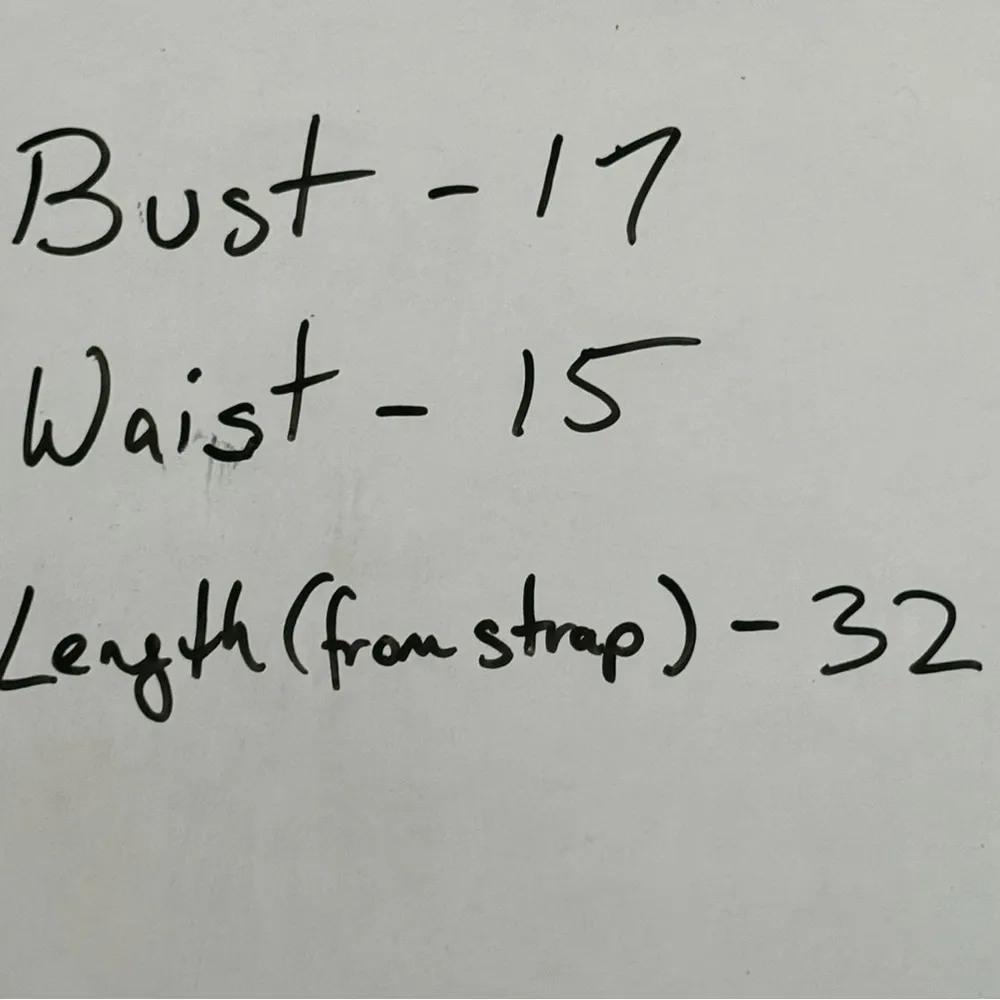 Bust - 17
Waist - 15
Length (from strap) - 32